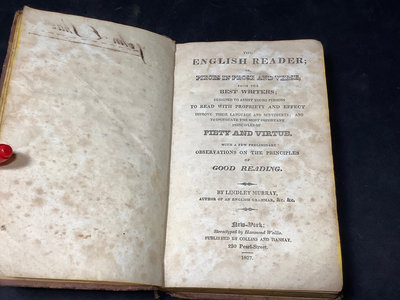 THE
ENGLISH READER;
OR,
PIECES IN PROSE AND VERSE,
FROM THE
BEST WRITERS;
DESIGNED TO ASSIST YOUNG PERSONS
TO READ WITH PROPRIETY AND EFFECT
IMPROVE THEIR LANGUAGE AND SENTIMENTS; AND
TO INCULCATE THE MOST IMPORTANT
PRINCIPLES OF
PIETY AND VIRTUE.
WITH A FEW PRELIMINARY
OBSERVATIONS ON THE PRINCIPLES
OF
GOOD READING.
BY LINDLEY MURRAY,
AUTHOR OF AN ENGLISH GRAMMAR, &c. &c.
New-York:
Stereotyped by Hammond Wallis.
PUBLISHED BY COLLINS AND HANNAY,
230 Pearl-Street.
1827.